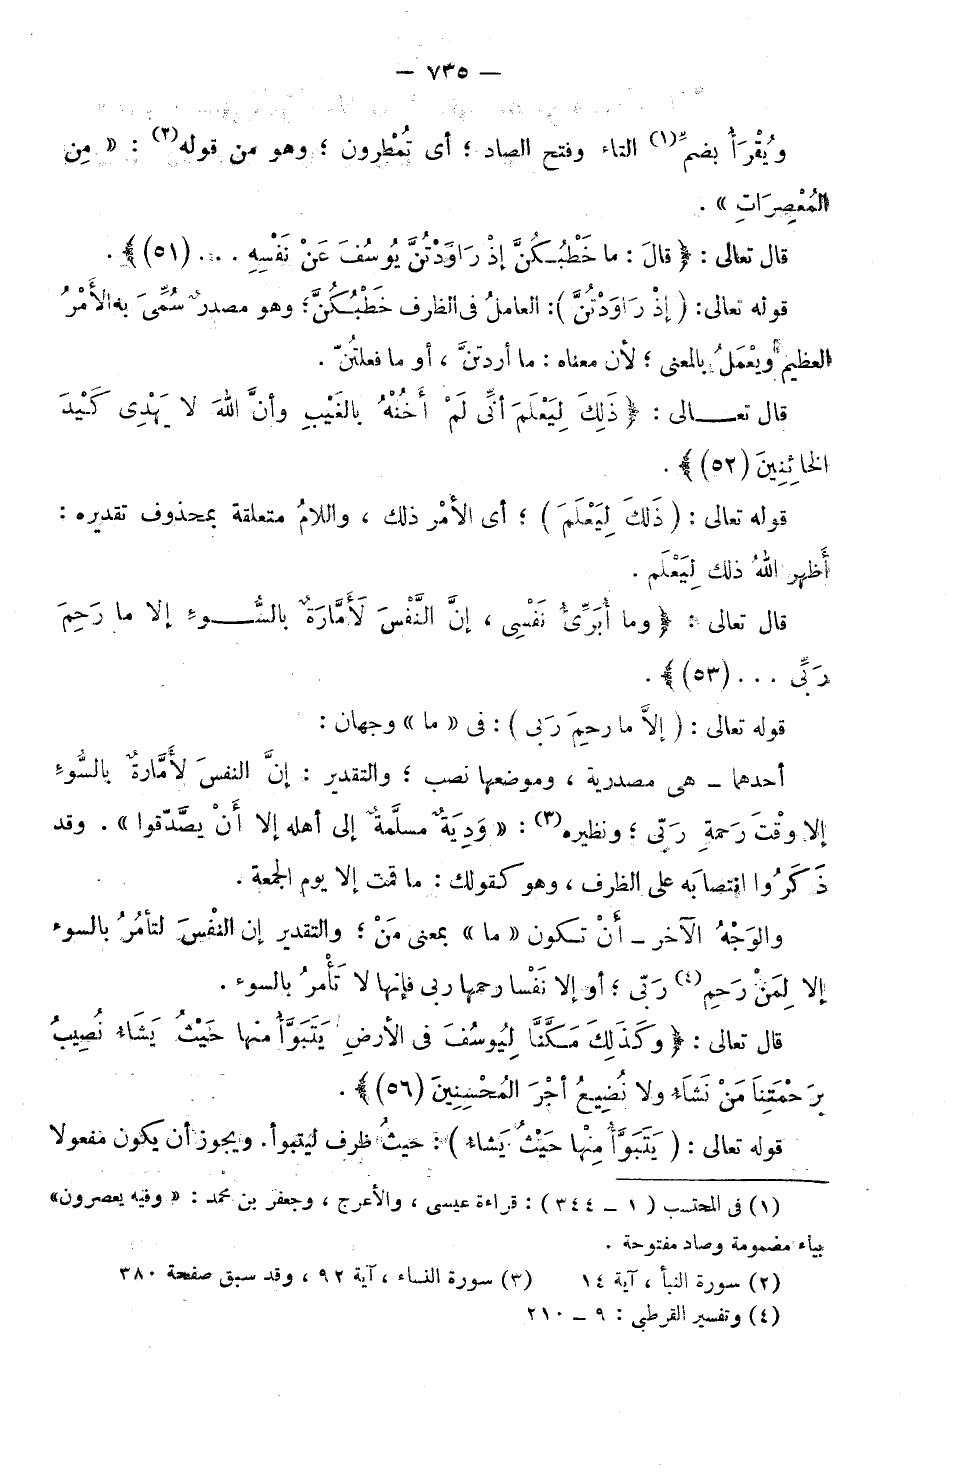 — ٧٣٥ —
ويُقْرَأُ بضمِّ(١) التاء وفتح الصاد ؛ أى تُمْطرون ؛ وهو من قوله(٢) : « مِن
المُعْصِرَاتِ » .
قال تعالى : ﴿ قالَ : ما خَطْبُـكُنَّ إذْ رَاوَدْتُنَّ يُوسُفَ عَنْ نَفْسِهِ . . . (٥١)﴾ .
قوله تعالى : ( إذْ رَاوَدْتُنَّ ) : العاملُ فى الظرف خَطْبُـكُنَّ ؛ وهو مصدرٌ سُمِّىَ به الأَمْرُ
العظيم ويَعْمَلُ بالمعنى ؛ لأن معناه : ما أردتنَّ ، أو ما فعلتُنّ .
قال تعـــالى : ﴿ ذَلِكَ لِيَعْلَمَ أنِّى لَمْ أَخُنْهُ بالغَيْبِ وأنَّ اللهَ لا يَهْدِى كَيْدَ
الخائِنِينَ (٥٢)﴾ .
قوله تعالى : ( ذَلكَ لِيَعْلَمَ ) ؛ أى الأَمْر ذلك ، واللامُ متعلقة بمحذوف تقديره :
أَظهر اللهُ ذلك لِيَعْلَم .
قال تعالى : ﴿ وما أُبَرِّئُ نَفْسِى ، إنَّ النَّفْسَ لَأَمَّارَةٌ بالسُّـــوءِ إلا ما رَحِمَ
رَبِّى . . . (٥٣)﴾ .
قوله تعالى : ( إلاَّ ما رحِمَ رَبى ) : فى « ما » وجهان :
أحدهما ــ هى مصدرية ، وموضعها نصب ؛ والتقدير : إنَّ النفسَ لأَمَّارةٌ بالسُّوءِ
إلا وقْتَ رَحمةِ رَبّى ؛ ونظيره(٣) : « وَدِيَةٌ مسلَّمةٌ إلى أهله إلا أَنْ يصَّدّقوا » . وقد
ذَكَرُوا انتصابَه على الظرف ، وهو كقولك : ما قمت إلا يوم الجمعة .
والوَجْهُ الآخر ــ أَنْ تـكون « ما » بمعنى مَنْ ؛ والتقدير إن النفْسَ لتأمُرُ بالسوء
إلا لِمَنْ رَحِم(٤) رَبّى ؛ أو إلا نَفْسا رحمها ربى فإنها لا تَأْمرُ بالسوء .
قال تعالى : ﴿ وكَذَلِكَ مَكَّنَّا لِيُوسُفَ فى الأرضِ يَتَبَوَّأُ منها حَيْثُ يَشَاء نُصِيبُ
برَحْمَتِنَا مَنْ نَشَاء ولا نُضِيعُ أجْرَ المُحْسِنِينَ (٥٦)﴾ .
قوله تعالى : ( يَتَبَوَّأُ مِنْها حَيْثُ يَشاء ) : حيثُ ظرف ليتبوأ . ويجوز أن يكون مفعولا
(١) فى المحتسب ( ١ ــ ٣٤٤ ) : قراءة عيسى ، والأعرج ، وجعفر بن محمد : « وفيه يعصرون»
بياء مضمومة وصاد مفتوحة .
(٢) سورة النبأ ، آية ١٤ (٣) سورة النساء ، آية ٩٢ ، وقد سبق صفحة ٣٨٠
(٤) وتفسير القرطبى : ٩ ــ ٢١٠